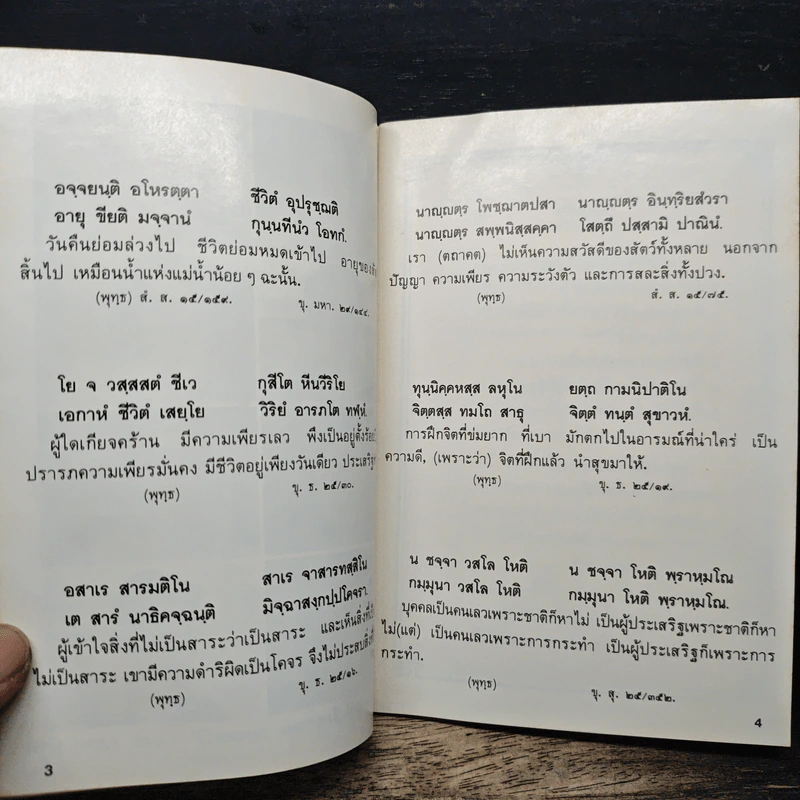 อจฺจยนฺติ อโหรตฺตา ชีวิตํ อุปรุชฺฌติ
อายุ ขียติ มจฺจานํ กุนฺนทีนํว โอทกํ.
วันคืนย่อมล่วงไป ชีวิตย่อมหมดเข้าไป อายุของ
สิ้นไป เหมือนน้ำแห่งแม่น้ำน้อย ๆ ฉะนั้น.
(พุทฺธ) สํ. ส. ๑๕/๑๕๙. ขุ. มหา. ๒๙/๑๔๔.
โย จ วสฺสสตํ ชีเว กุสีโต หีนวีริโย
เอกาหํ ชีวิตํ เสยฺโย วิริยํ อารภโต ทฬฺหํ.
ผู้ใดเกียจคร้าน มีความเพียรเลว พึงเป็นอยู่ตั้งร้อย
ปรารภความเพียรมั่นคง มีชีวิตอยู่เพียงวันเดียว ประเสริฐ
(พุทฺธ) ขุ. ธ. ๒๕/๓๐.
อสาเร สารมติโน สาเร จาสารทสฺสิโน
เต สารํ นาธิคจฺฉนฺติ มิจฺฉาสงฺกปฺปโคจรา.
ผู้เข้าใจสิ่งที่ไม่เป็นสาระว่าเป็นสาระ และเห็นสิ่งที่
ไม่เป็นสาระ เขามีความดำริผิดเป็นโคจร จึงไม่ประสบสิ่ง
(พุทฺธ) ขุ. ธ. ๒๕/๑๖.
3
นาญฺญตฺร โพชฺฌาตปสา นาญฺญตฺร อินฺทฺริยสํวรา
นาญฺญตฺร สพฺพนิสฺสคฺคา โสตฺถึ ปสฺสามิ ปาณินํ.
เรา (ตถาคต) ไม่เห็นความสวัสดีของสัตว์ทั้งหลาย นอกจาก
ปัญญา ความเพียร ความระวังตัว และการสละสิ่งทั้งปวง.
(พุทฺธ) สํ. ส. ๑๕/๗๕.
ทุนฺนิคฺคหสฺส ลหุโน ยตฺถ กามนิปาติโน
จิตฺตสฺส ทมโถ สาธุ จิตฺตํ ทนฺตํ สุขาวหํ.
การฝึกจิตที่ข่มยาก ที่เบา มักตกไปในอารมณ์ที่น่าใคร่ เป็น
ความดี, (เพราะว่า) จิตที่ฝึกแล้ว นำสุขมาให้.
(พุทฺธ) ขุ. ธ. ๒๕/๑๙.
น ชจฺจา วสโล โหติ น ชจฺจา โหติ พฺราหฺมโณ
กมฺมุนา วสโล โหติ กมฺมุนา โหติ พฺราหฺมโณ.
บุคคลเป็นคนเลวเพราะชาติก็หาไม่ เป็นผู้ประเสริฐเพราะชาติก็หา
ไม่(แต่) เป็นคนเลวเพราะการกระทำ เป็นผู้ประเสริฐก็เพราะการ
กระทำ.
(พุทฺธ) ขุ. สุ. ๒๕/๓๕๒.
4